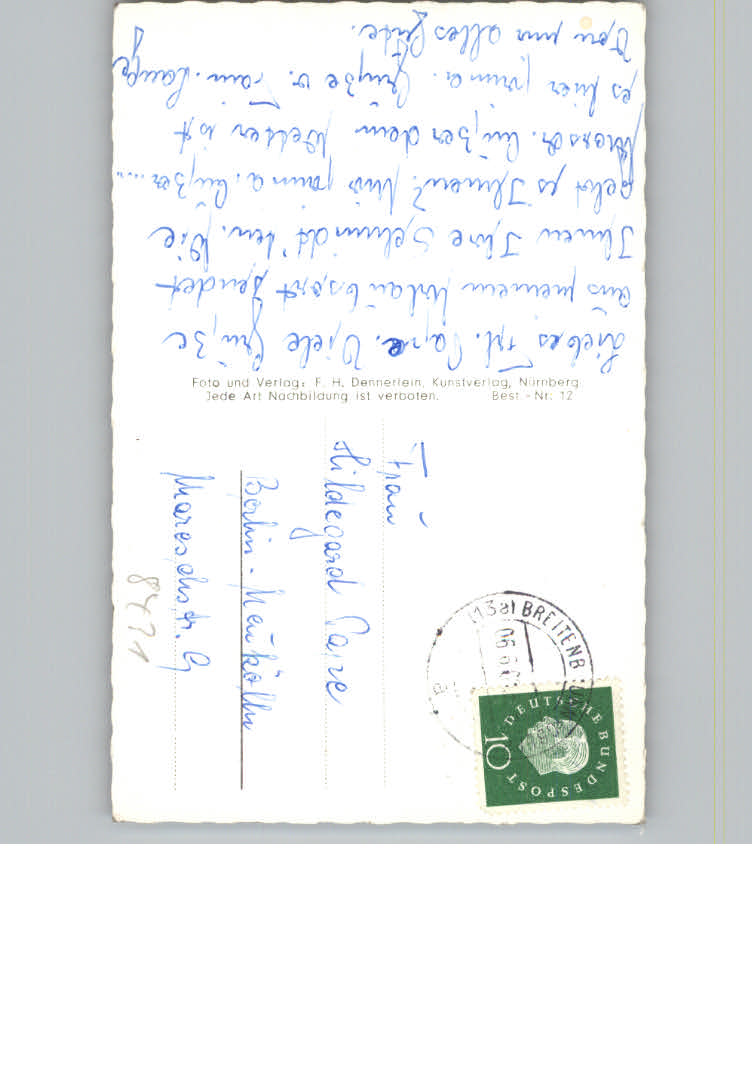 Liebes Frl. Pape. Viele Grüße
aus meinem Urlaubsort sendet
Ihnen Ihre Schmidt'chen. Wie
geht es Ihnen? Mir prima. Außer.....
Außer dem Wetter ist
es hier prima. Grüße v. Fam. Lange
von nun alles Gute.
Foto und Verlag: F. H. Dennerlein, Kunstverlag, Nürnberg
Jede Art Nachbildung ist verboten. Best.-Nr: 12
Frau
Hildegard Pape
Berlin-Neukölln
Mareschstr. 9
8471
(13a) BREITENB
DEUTSCHE BUNDESPOST
10